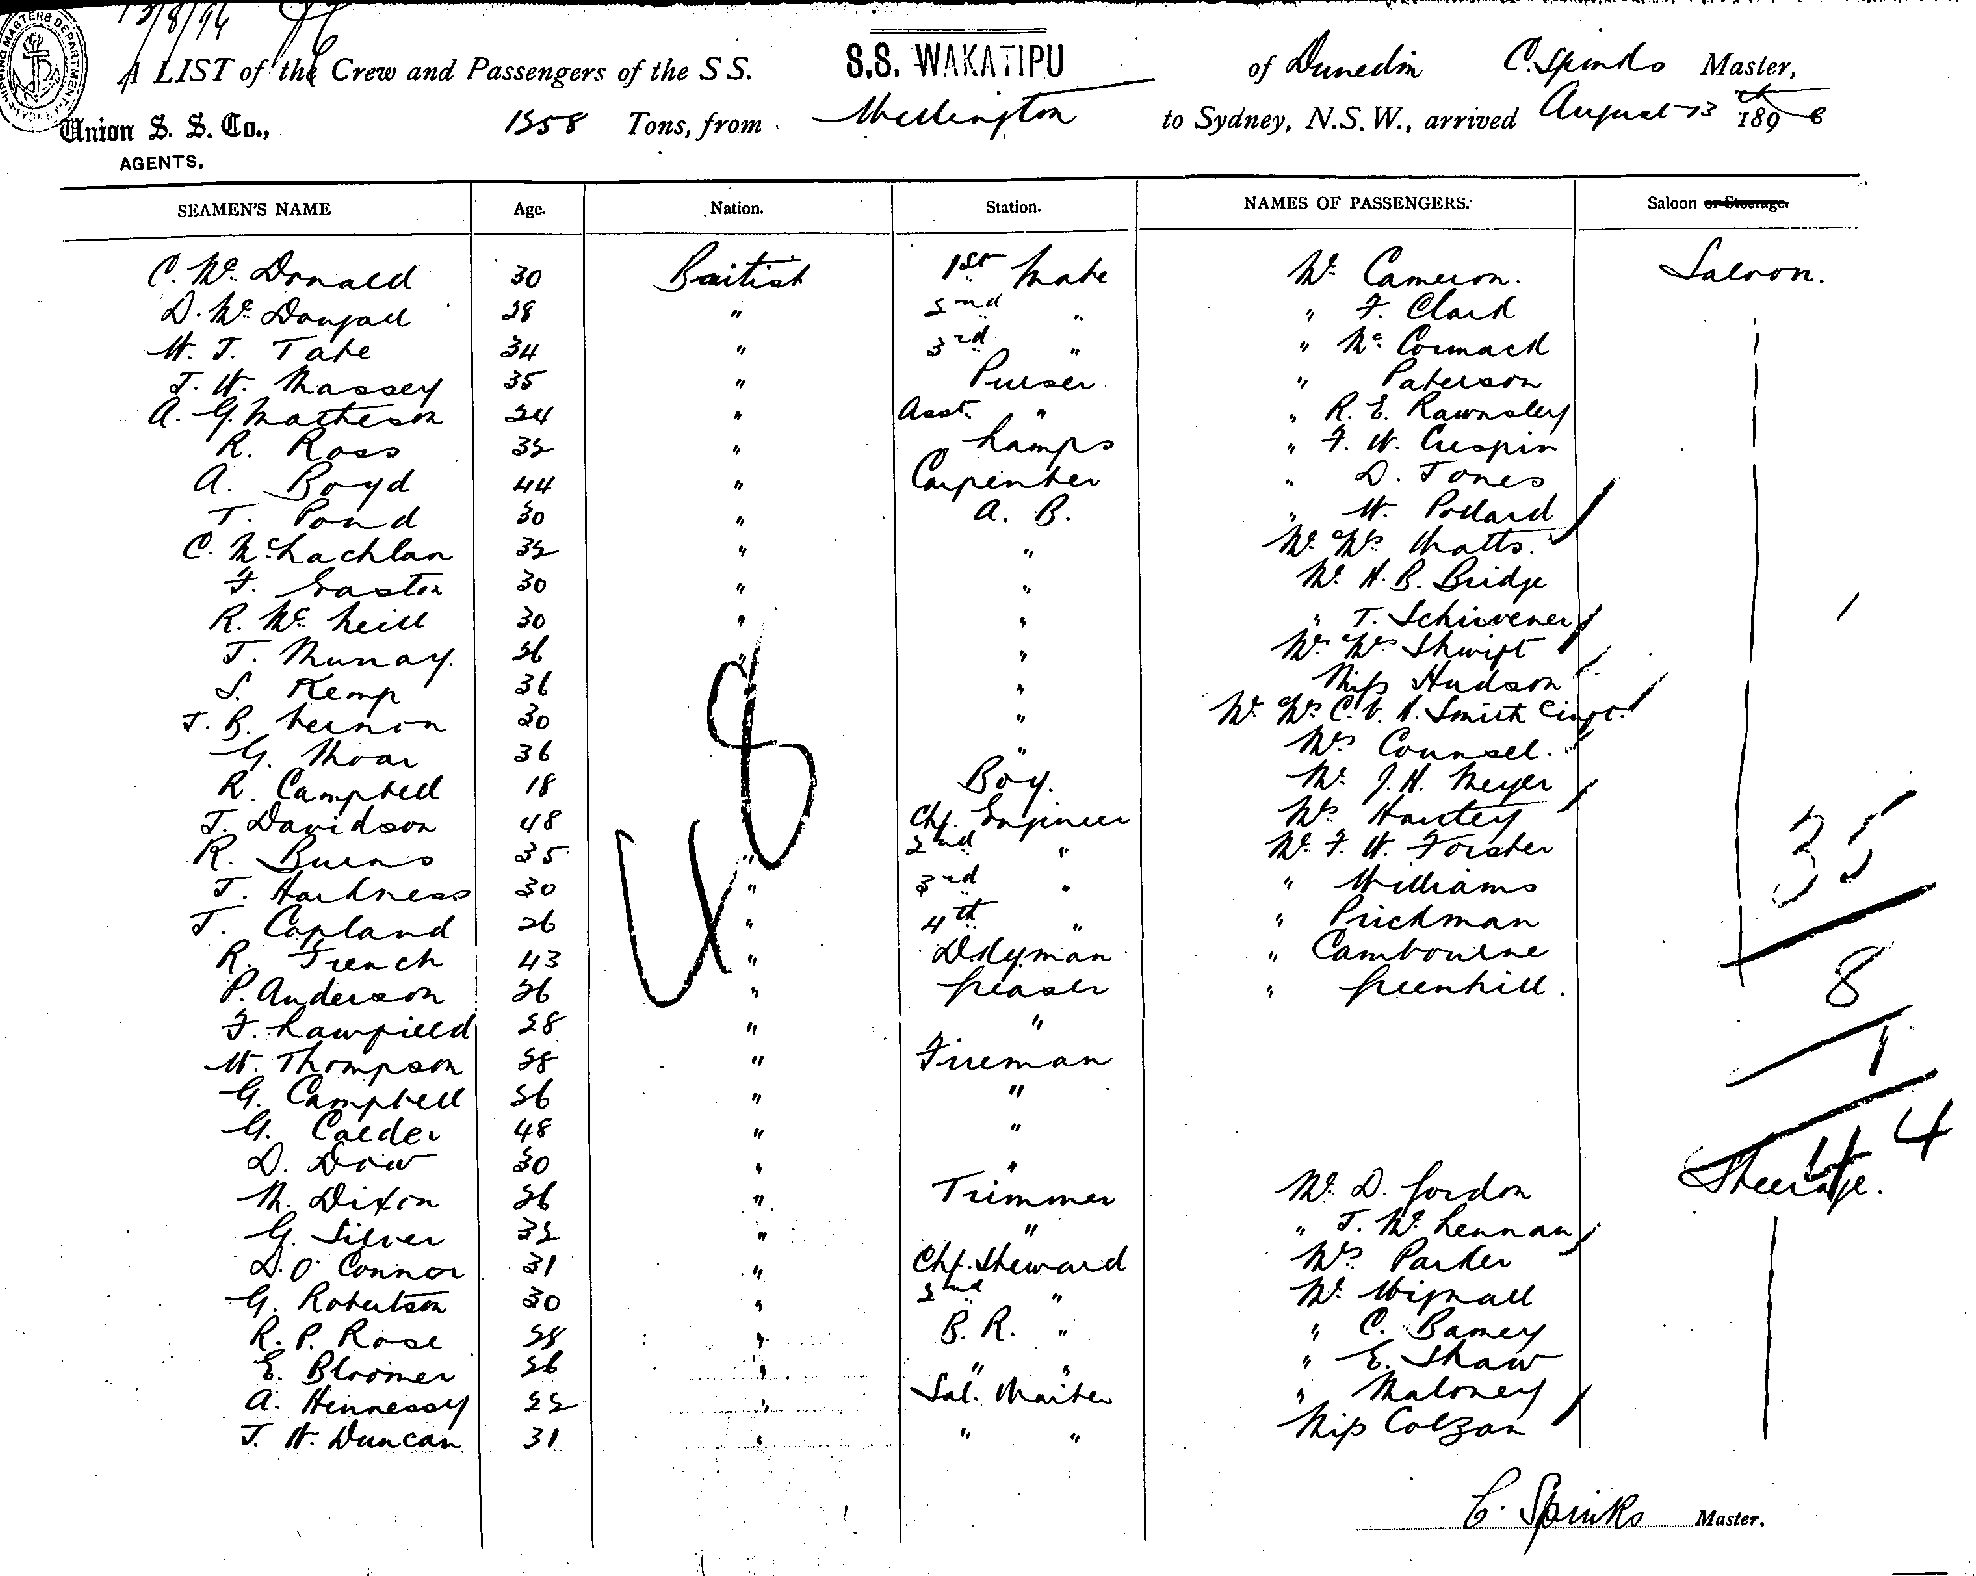 13/8/96
A LIST of the Crew and Passengers of the S S. S.S. WAKATIPU of Dunedin C. Spinks Master,
Union S. S. Co., 1258 Tons, from Wellington to Sydney, N.S.W., arrived August 13th 1896
AGENTS.
SEAMEN'S NAME Age. Nation. Station. NAMES OF PASSENGERS. Saloon or Steerage.
C. Mc. Donald 30 British 1st Mate Mr. Cameron. Saloon.
D. Mc Dougall 28 " 2nd " " F. Clark
W. J. Tate 34 " 3rd " " Mc Cormack
J. W. Massey 35 " Purser " Paterson
A. G. Matheson 24 " Asst. " " R. E. Rawnsley
R. Ross 32 " Lamps " F. W. Crespin
A. Boyd 44 " Carpenter " D. Jones
T. Pond 30 " A. B. " W. Pollard
C. McLachlan 32 " " Mr. Mrs Watts.
F. Easton 30 " " Mr. H. B. Bridge
R. Mc Neill 30 " " " T. Schirvener
J. Murray. 26 " " Mr. Mrs Shwift
S. Kemp 36 " Miss Hudson
J. B. Vernon 30 " Mr. Mrs C. V. H. Smith &inft.
G. Moar 36 " Mrs Counsel.
R. Campbell 18 Boy. Mr. J. H. Meyer
J. Davidson 48 Chf. Engineer Mrs Hartey
R. Burns 35 " 2nd " Mr. F. W. Forster
J. Harkness 30 " 3rd " " Williams 35
J. Copland 26 " 4th " " Prickman
R. French 43 " Dkyman " Cambourne
P. Anderson 26 " Greaser " Greenhill. 8
F. Lawfield 28 " "
W. Thompson 28 " Fireman 1
G. Campbell 26 " "
G. Calder 48 " " 44
D. Dow 30 " "
M. Dixon 26 " Trimmer Mr. D. Gordon Steerage.
G. Silver 32 " " " J. Mc Lennan
D. O'Connor 31 " Chf. Steward Mrs Parker
G. Robertson 30 " 2nd " Mr. Wignall
R. P. Rose 28 " B. R. " " C. Barney
E. Bloomer 26 " " " " E. Shaw
A. Hennessy 22 " Sal. Waiter " Maloney
J. W. Duncan 31 " " " Miss Colzan
48
C. Spinks Master.